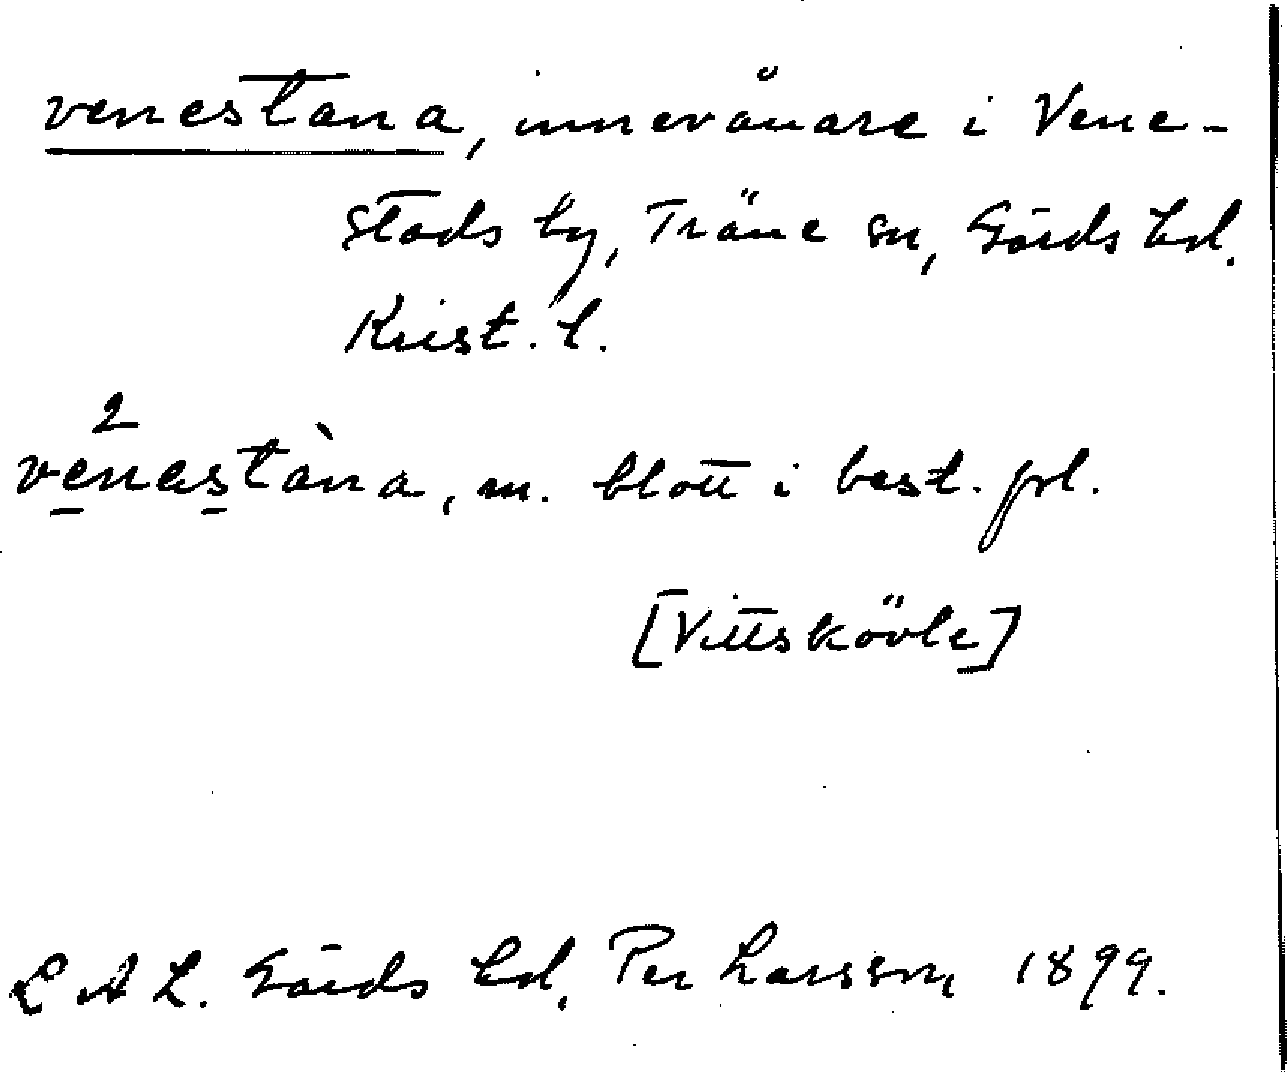 venestana, innevånare i Vene-
stads by, Träne sn, Gärds hd.
Krist. l.
2
venestàna, m. blott i best. pl.
[Vittskövle]
L A L. Gärds hd, Per Larsson, 1899.